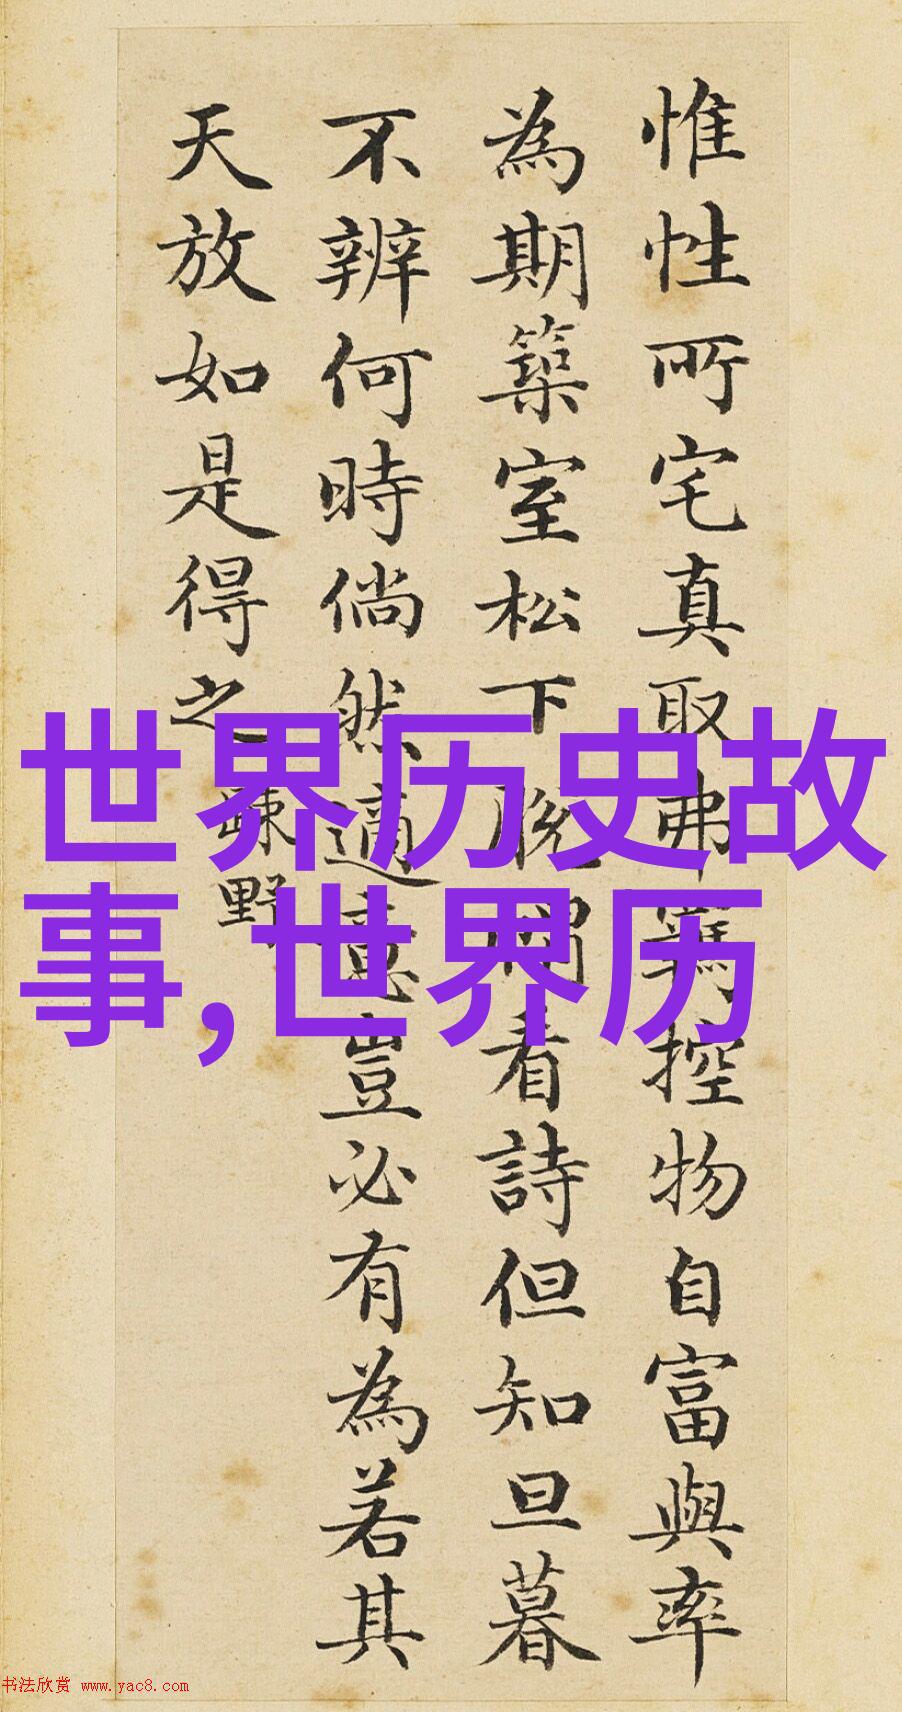 惟性所宅真取弗羈控物自富與率
為期築室松下脫帽看詩但知旦暮
不辨何時倘然適意豈必有為若其
天放如是得之
疎野
世界历史故
事,世界历
书法欣赏 www.yac8.com